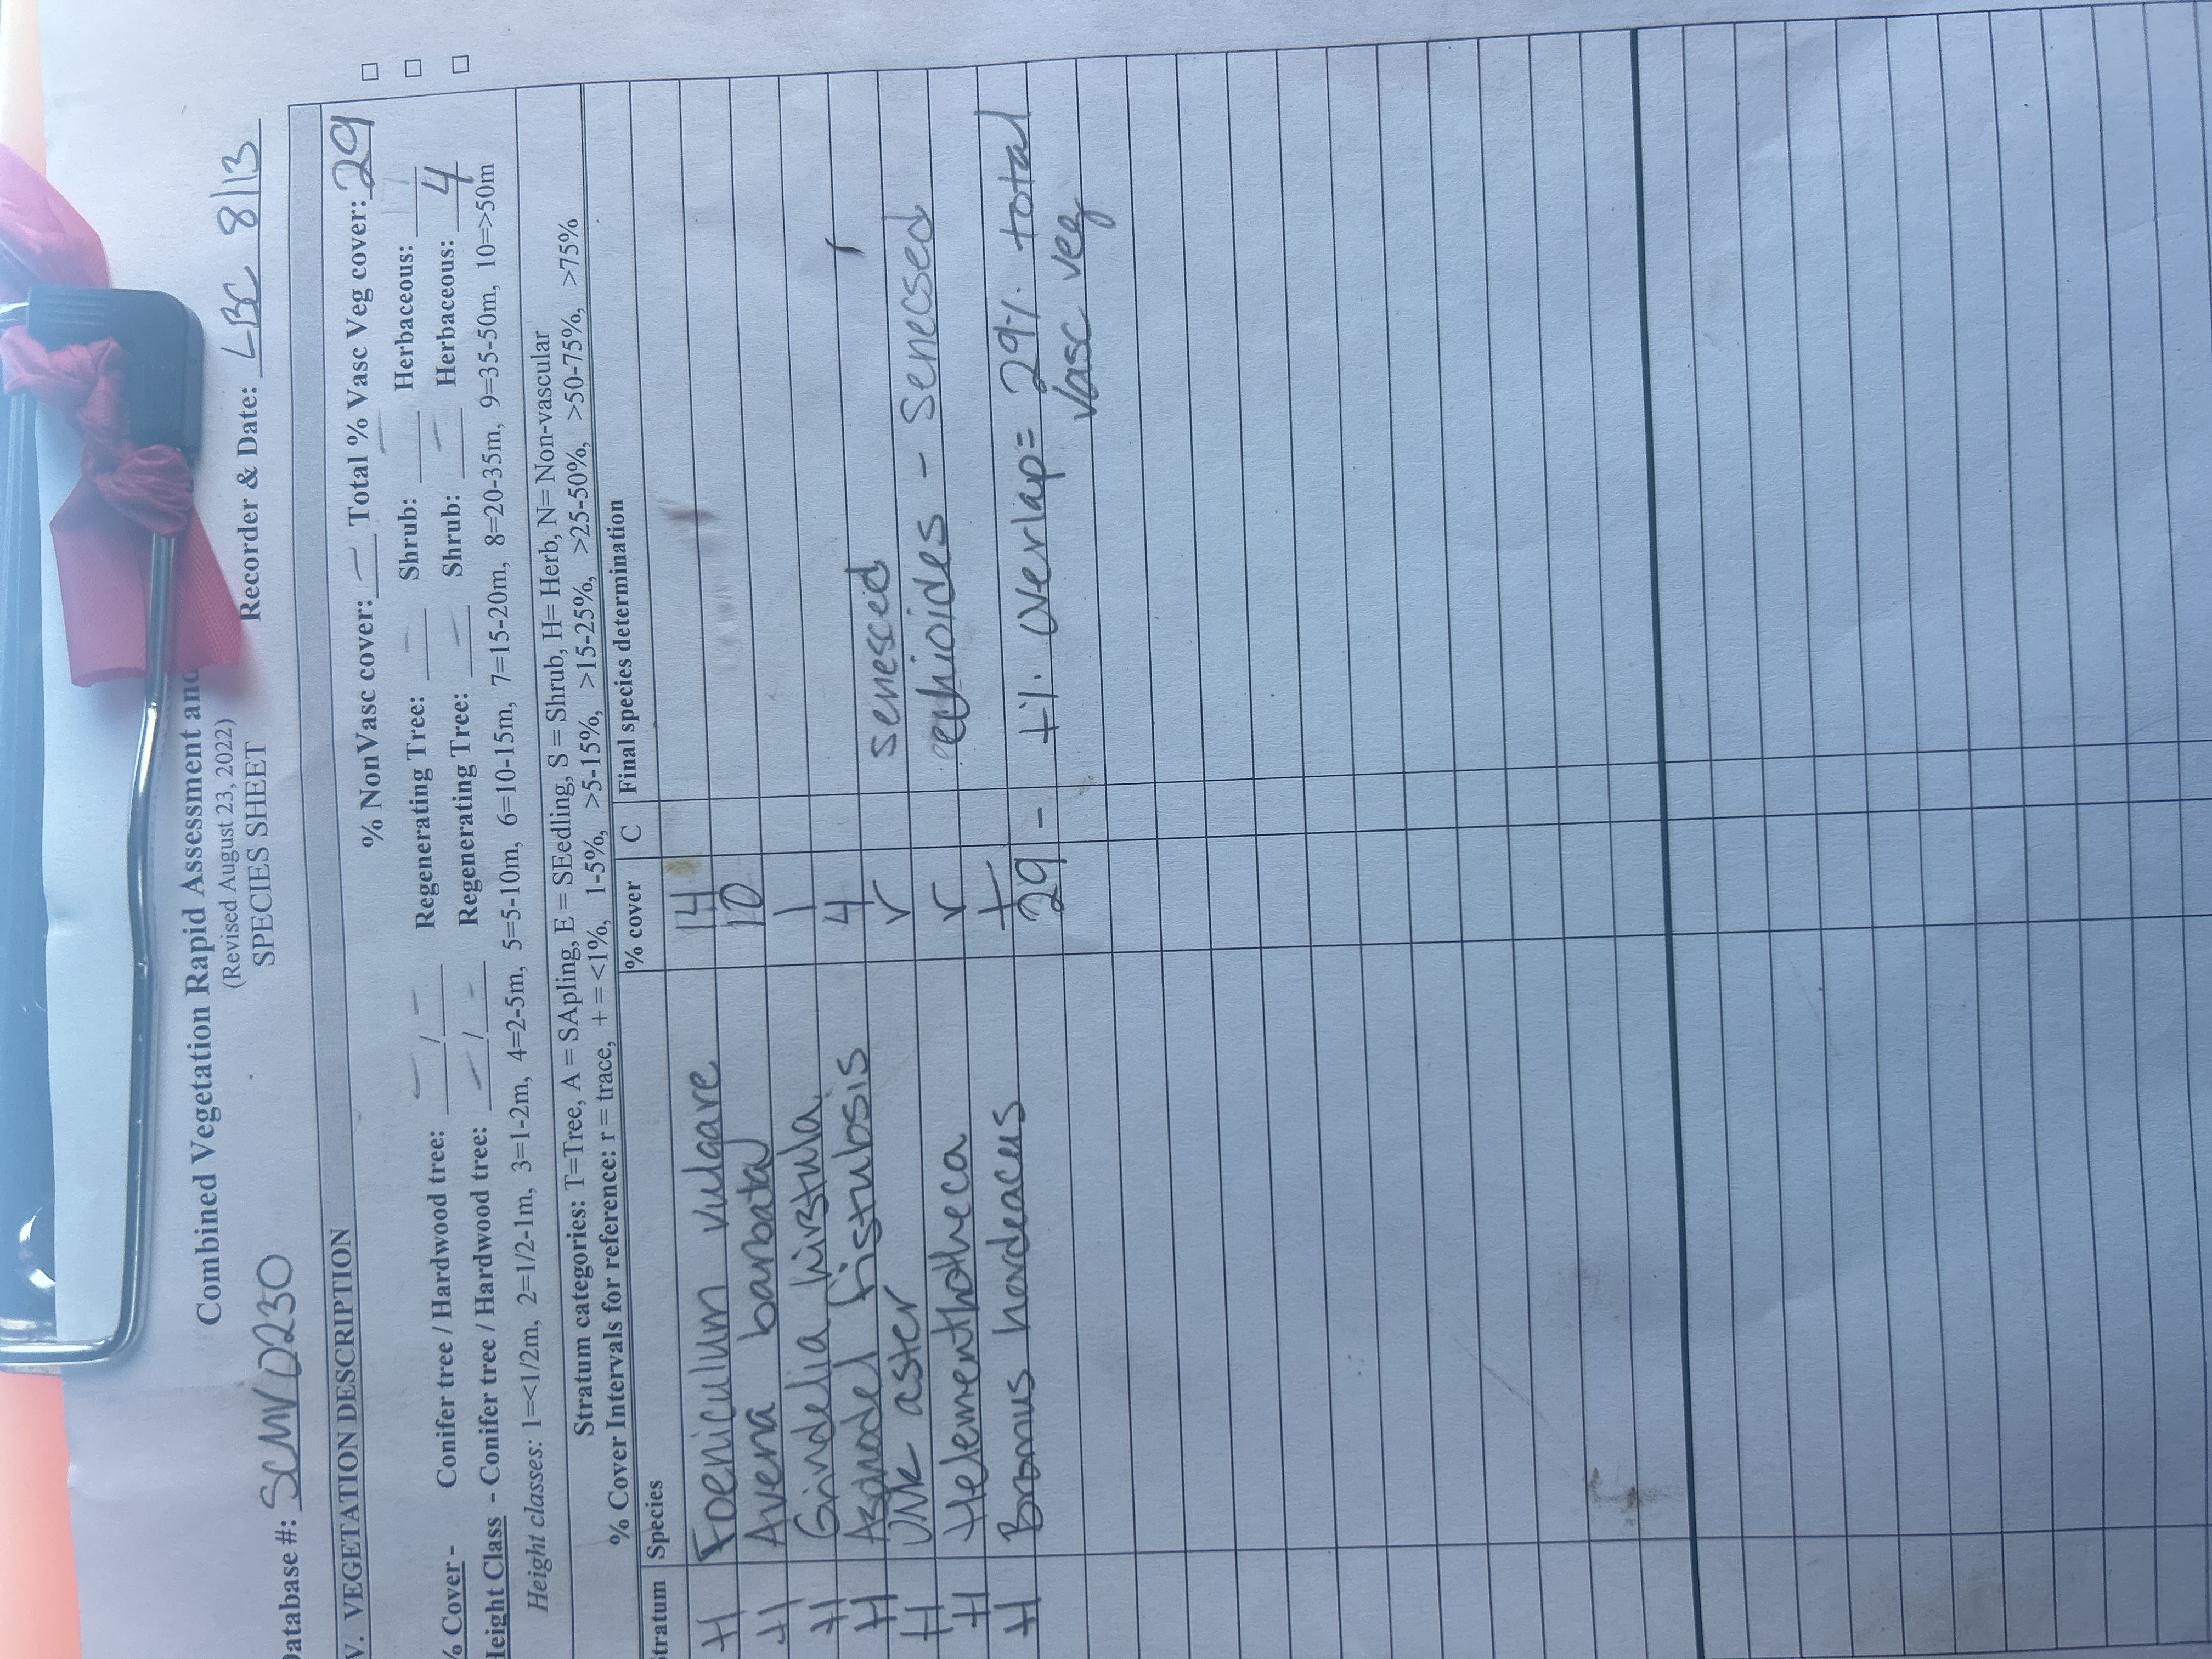 Combined Vegetation Rapid Assessment and
(Revised August 23, 2022)
SPECIES SHEET
Database #: SCMV0230 Recorder & Date: LBC 8/13
V. VEGETATION DESCRIPTION
% NonVasc cover: – Total % Vasc Veg cover: 29
% Cover - Conifer tree / Hardwood tree: – / – Regenerating Tree: – Shrub: – Herbaceous:
Height Class - Conifer tree / Hardwood tree: – / – Regenerating Tree: – Shrub: – Herbaceous: 4
Height classes: 1=<1/2m, 2=1/2-1m, 3=1-2m, 4=2-5m, 5=5-10m, 6=10-15m, 7=15-20m, 8=20-35m, 9=35-50m, 10=>50m
Stratum categories: T=Tree, A = SApling, E = SEedling, S = Shrub, H= Herb, N= Non-vascular
% Cover Intervals for reference: r = trace, + = <1%, 1-5%, >5-15%, >15-25%, >25-50%, >50-75%, >75%
Stratum Species % cover C Final species determination
H Foeniculum vulgare 14
H Avena barbata 10
H Grindelia hirstula 1
H Asphodel fistulosis 4
H UNK aster r senesced
H Helementhotheca r echioides - senecsed
H Bromus hordeaceus +
29 - +% overlap = 29% total
vasc veg